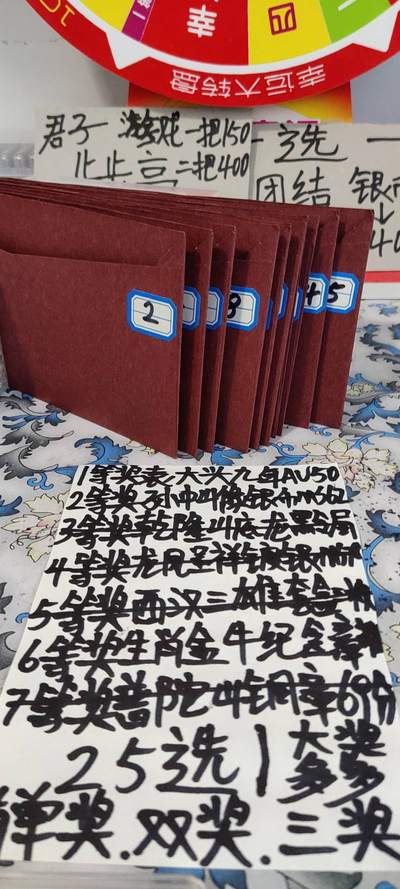 幸
四
一
10
幸运大转盘
君子 游戏一把150
止止言二把400
一选一
团结 银币
2
3
4
5
1等奖 袁大头九年AU50
2等奖 孙中山像银币MS62
3等奖乾隆山底龙
4等奖龙凤呈祥
5等奖西汉三雄套
6等奖生肖金牛纪念章
7等奖普陀山铜章69分
25选1 大奖多多
单奖.双奖.三奖